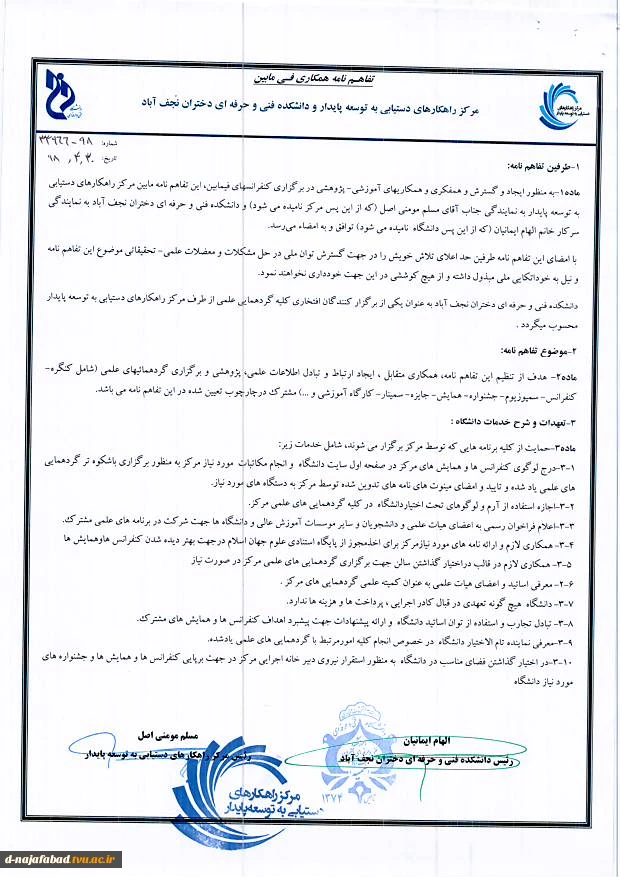 تفاهم نامه همکاری فی مابین
مرکز راهکارهای دستیابی به توسعه پایدار و دانشکده فنی و حرفه ای دختران نجف آباد
مرکز راهکارهای
دستیابی به توسعه پایدار
شماره: ۹۸-۳۳۹۶۶
تاریخ: ۹۸،۴،۳۰
۱-طرفین تفاهم نامه:
ماده۱-به منظور ایجاد و گسترش و همفکری و همکاریهای آموزشی- پژوهشی در برگزاری کنفرانسهای فیمابین، این تفاهم نامه مابین مرکز راهکارهای دستیابی
به توسعه پایدار به نمایندگی جناب آقای مسلم مومنی اصل (که از این پس مرکز نامیده می شود) و دانشکده فنی و حرفه ای دختران نجف آباد به نمایندگی
سرکار خانم الهام ایمانیان (که از این پس دانشگاه نامیده می شود) توافق و به امضاء می‌رسد.
با امضای این تفاهم نامه طرفین حد اعلای تلاش خویش را در جهت گسترش توان ملی در حل مشکلات و معضلات علمی- تحقیقاتی موضوع این تفاهم نامه
و نیل به خوداتکایی ملی مبذول داشته و از هیچ کوششی در این جهت خودداری نخواهند نمود.
دانشکده فنی و حرفه ای دختران نجف آباد به عنوان یکی از برگزار کنندگان افتخاری کلیه گردهمایی علمی از طرف مرکز راهکارهای دستیابی به توسعه پایدار
محسوب میگردد .
۲-موضوع تفاهم نامه:
ماده۲- هدف از تنظیم این تفاهم نامه، همکاری متقابل ، ایجاد ارتباط و تبادل اطلاعات علمی، پژوهشی و برگزاری گردهمائیهای علمی (شامل کنگره-
کنفرانس- سمپوزیوم- جشنواره- همایش- جایزه- سمینار- کارگاه آموزشی و ...) مشترک درچارچوب تعیین شده در این تفاهم نامه می باشد.
۳-تعهدات و شرح خدمات دانشگاه :
ماده۳-حمایت از کلیه برنامه هایی که توسط مرکز برگزار می شوند، شامل خدمات زیر:
۳-۱-درج لوگوی کنفرانس ها و همایش های مرکز در صفحه اول سایت دانشگاه و انجام مکاتبات مورد نیاز مرکز به منظور برگزاری باشکوه تر گردهمایی
های علمی یاد شده و تایید و امضای مینوت های نامه های تدوین شده توسط مرکز به دستگاه های مورد نیاز.
۳-۲-اجازه استفاده از آرم و لوگوهای تحت اختیاردانشگاه در کلیه گردهمایی های علمی مرکز.
۳-۳-اعلام فراخوان رسمی به اعضای هیات علمی و دانشجویان و سایر موسسات آموزش عالی و دانشگاه ها جهت شرکت در برنامه های علمی مشترک.
۳-۴- همکاری لازم و ارائه نامه های مورد نیازمرکز برای اخذمجوز از پایگاه استنادی علوم جهان اسلام درجهت بهتر دیده شدن کنفرانس هاوهمایش ها
۳-۵-همکاری لازم در قالب دراختیار گذاشتن سالن جهت برگزاری گردهمایی های علمی مرکز در صورت نیاز
۶-۲- معرفی اساتید و اعضای هیات علمی به عنوان کمیته علمی گردهمایی های مرکز .
۳-۷-دانشگاه هیچ گونه تعهدی در قبال کادر اجرایی ، پرداخت ها و هزینه ها ندارد.
۳-۸- تبادل تجارب و استفاده از توان اساتید دانشگاه و ارائه پیشنهادات جهت پیشبرد اهداف کنفرانس ها و همایش های مشترک.
۳-۹-معرفی نماینده تام الاختیار دانشگاه در خصوص انجام کلیه امورمرتبط با گردهمایی های علمی یادشده.
۳-۱۰-در اختیار گذاشتن فضای مناسب در دانشگاه به منظور استقرار نیروی دبیر خانه اجرایی مرکز در جهت برپایی کنفرانس ها و همایش ها و جشنواره های
مورد نیاز دانشگاه
الهام ایمانیان
رئیس دانشکده فنی و حرفه ای دختران نجف آباد
مسلم مومنی اصل
رئیس مرکز راهکارهای دستیابی به توسعه پایدار
۱۳۷۴
مرکز راهکارهای
دستیابی به توسعه پایدار
d-najafabad.tvu.ac.ir